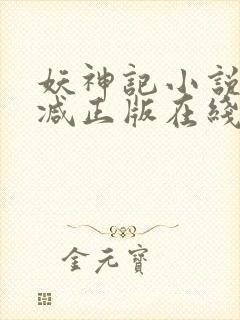 妖神記小説
减正版在綫
金元寶